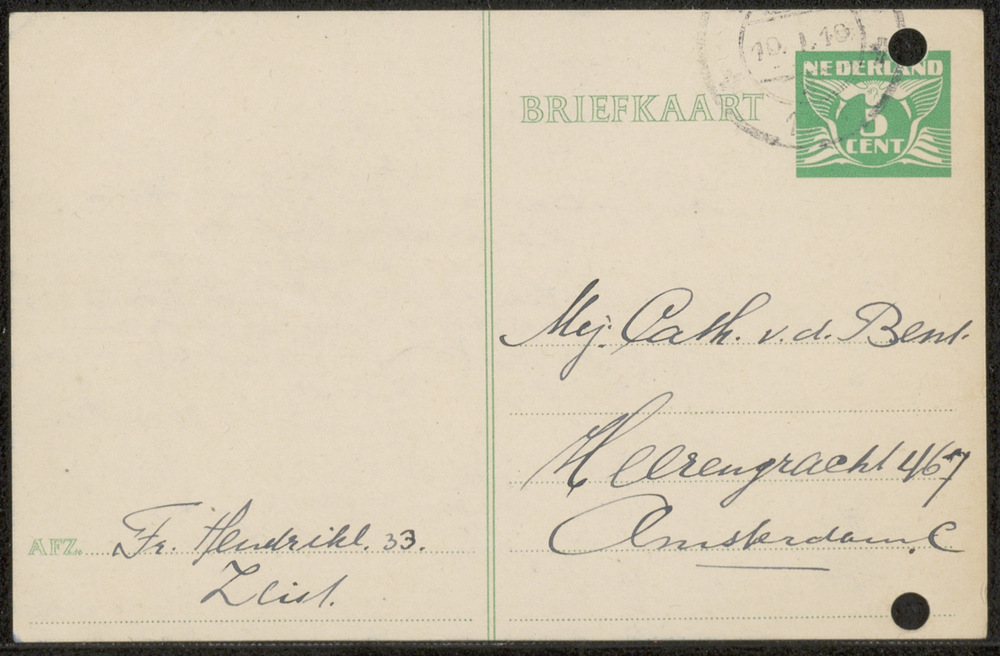 19.1.18
NEDERLAND
BRIEFKAART
5
CENT
Mej. Cath. v. d. Bent.
Heerengracht 467
Amsterdam. C
AFZ. Fr. Hendrikl. 33.
Zeist.